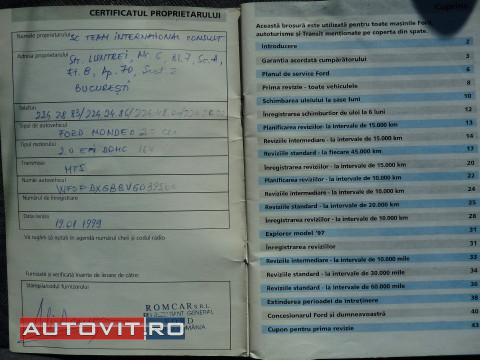 CERTIFICATUL PROPRIETARULUI
Numele proprietarului
SC TEAM INTERNATIONAL CONSULT
Adresa proprietarului
Str. LUNTREI, Nr. 6, Bl. 7, Sc. A,
Et. 8, Ap. 70, Sect. 2
BUCUREȘTI
Telefon
Tipul de autovehicul
FORD MONDEO
Tipul motorului
2.0 EFI DOHC 16V
Transmisia
MT5
Numele autovehicul
Numărul de înregistrare
Data livrării
19.01.1999
Vă rugăm să notați în agendă numărul cheii și codul radio
Furnizată și verificată înainte de livrare de către:
Ștampila furnizorului
ROMCAR S.R.L.
GENERAL
FORD
ROMÂNIA
AUTOVIT.RO
Cuprins
Această broșură este utilizată pentru toate mașinile Ford,
autoturisme și Transit menționate pe coperta din spate.
Introducere 2
Garanția acordată cumpărătorului 3
Planul de service Ford 6
Prima revizie - toate vehiculele 8
Schimbarea uleiului la șase luni 10
Înregistrarea schimburilor de ulei la 6 luni 12
Planificarea reviziilor - la intervale de 15.000 km 13
Reviziile intermediare - la intervale de 15.000 km 14
Reviziile standard - la fiecare 45.000 km 17
Înregistrarea reviziilor - la intervale de 15.000 km 20
Planificarea reviziilor - la intervale de 10.000 km 22
Reviziile intermediare - la intervale de 10.000 km 24
Reviziile standard - la intervale de 20.000 km 25
Înregistrarea reviziilor - la intervale de 10.000 km 28
Explorer model '97 31
Înregistrarea reviziilor 31
Reviziile intermediare - la intervale de 10.000 mile 33
Reviziile standard - la intervale de 30.000 mile 34
Reviziile standard - la intervale de 60.000 mile 36
Extinderea perioadei de întreținere 38
Concesionarul Ford și dumneavoastră 40
Cupon pentru prima revizie 43